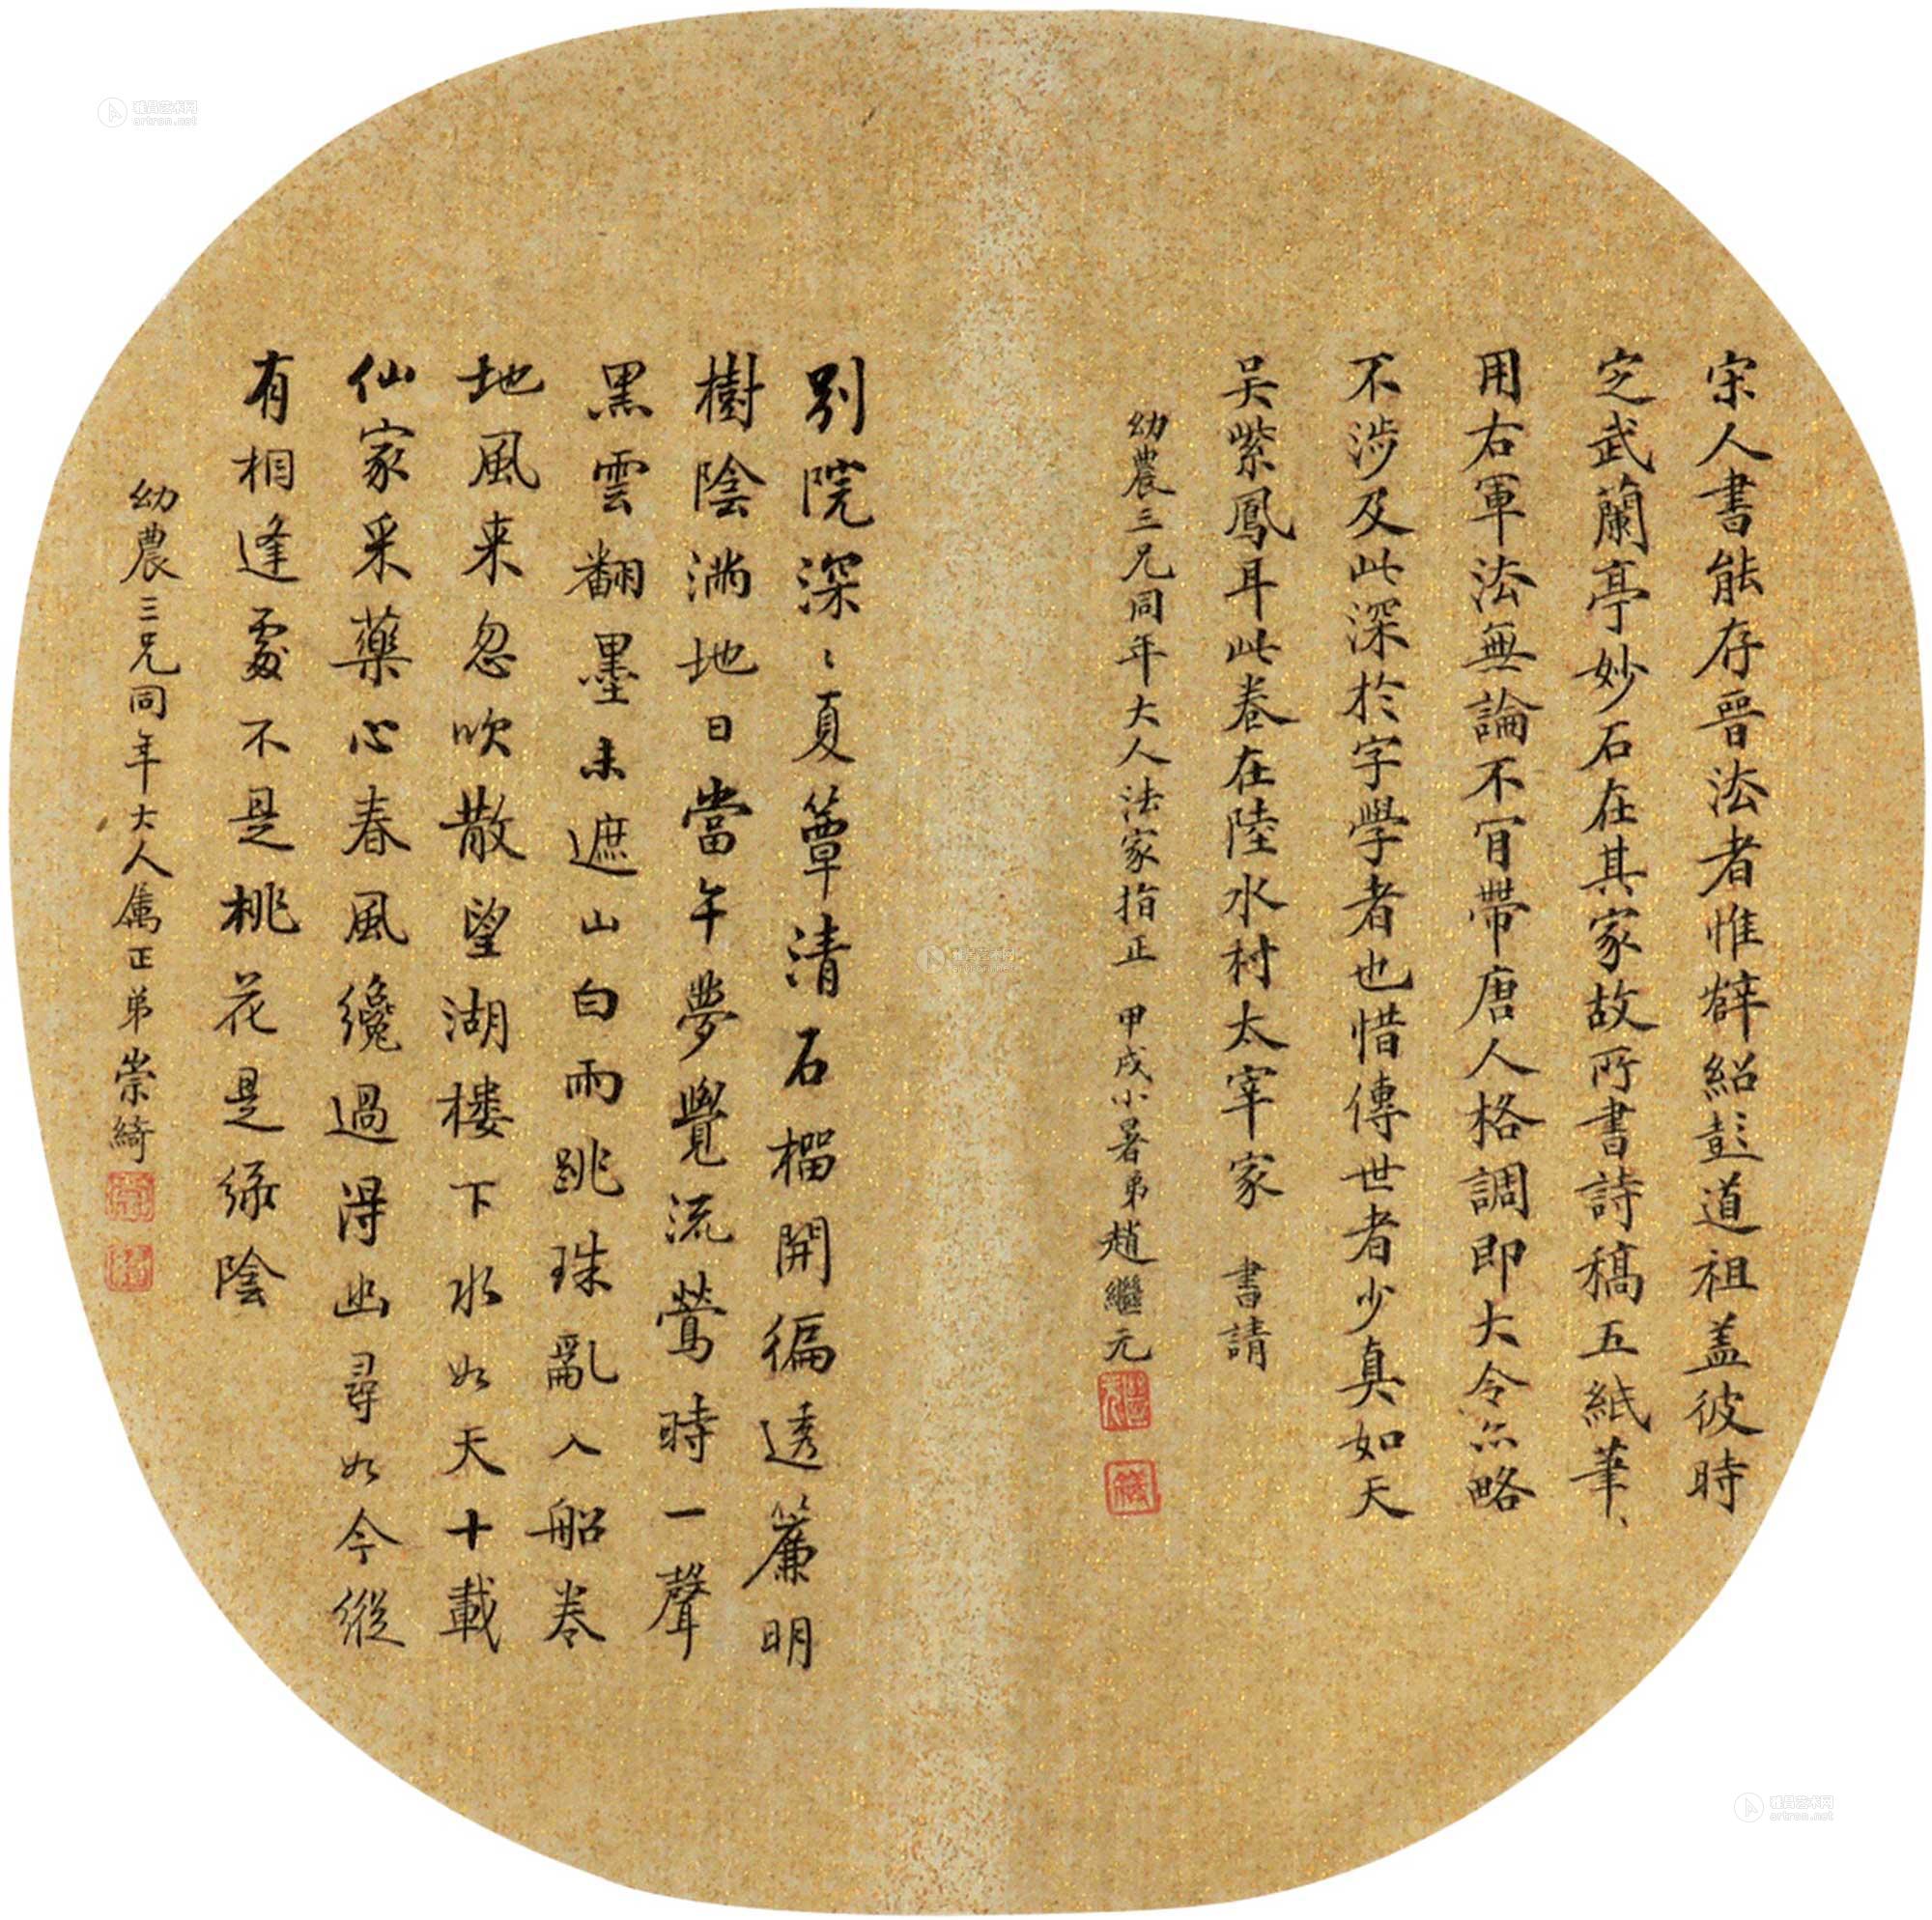 宋人書能存晉法者惟薛紹彭道祖盖彼時
定武蘭亭妙石在其家故所書詩稿五紙筆、
用右軍法無論不肎帶唐人格調即大令亦略
不涉及此深於字學者也惜傳世者少真如天
吴紫鳳耳此卷在陸水村太宰家 書請
幼農三兄同年大人法家指正 甲戌小暑弟趙繼元
別院深〻夏簟清石榴開徧透簾明
樹陰滿地日當午夢覺流鶯時一聲
黑雲翻墨未遮山白雨跳珠亂入船卷
地風来忽吹散望湖楼下水如天十載
仙家采藥心春風纔過得幽尋如今縱
有相逢處不是桃花是綠陰
幼農三兄同年大人屬正弟崇綺
雅昌艺术网
artron.net